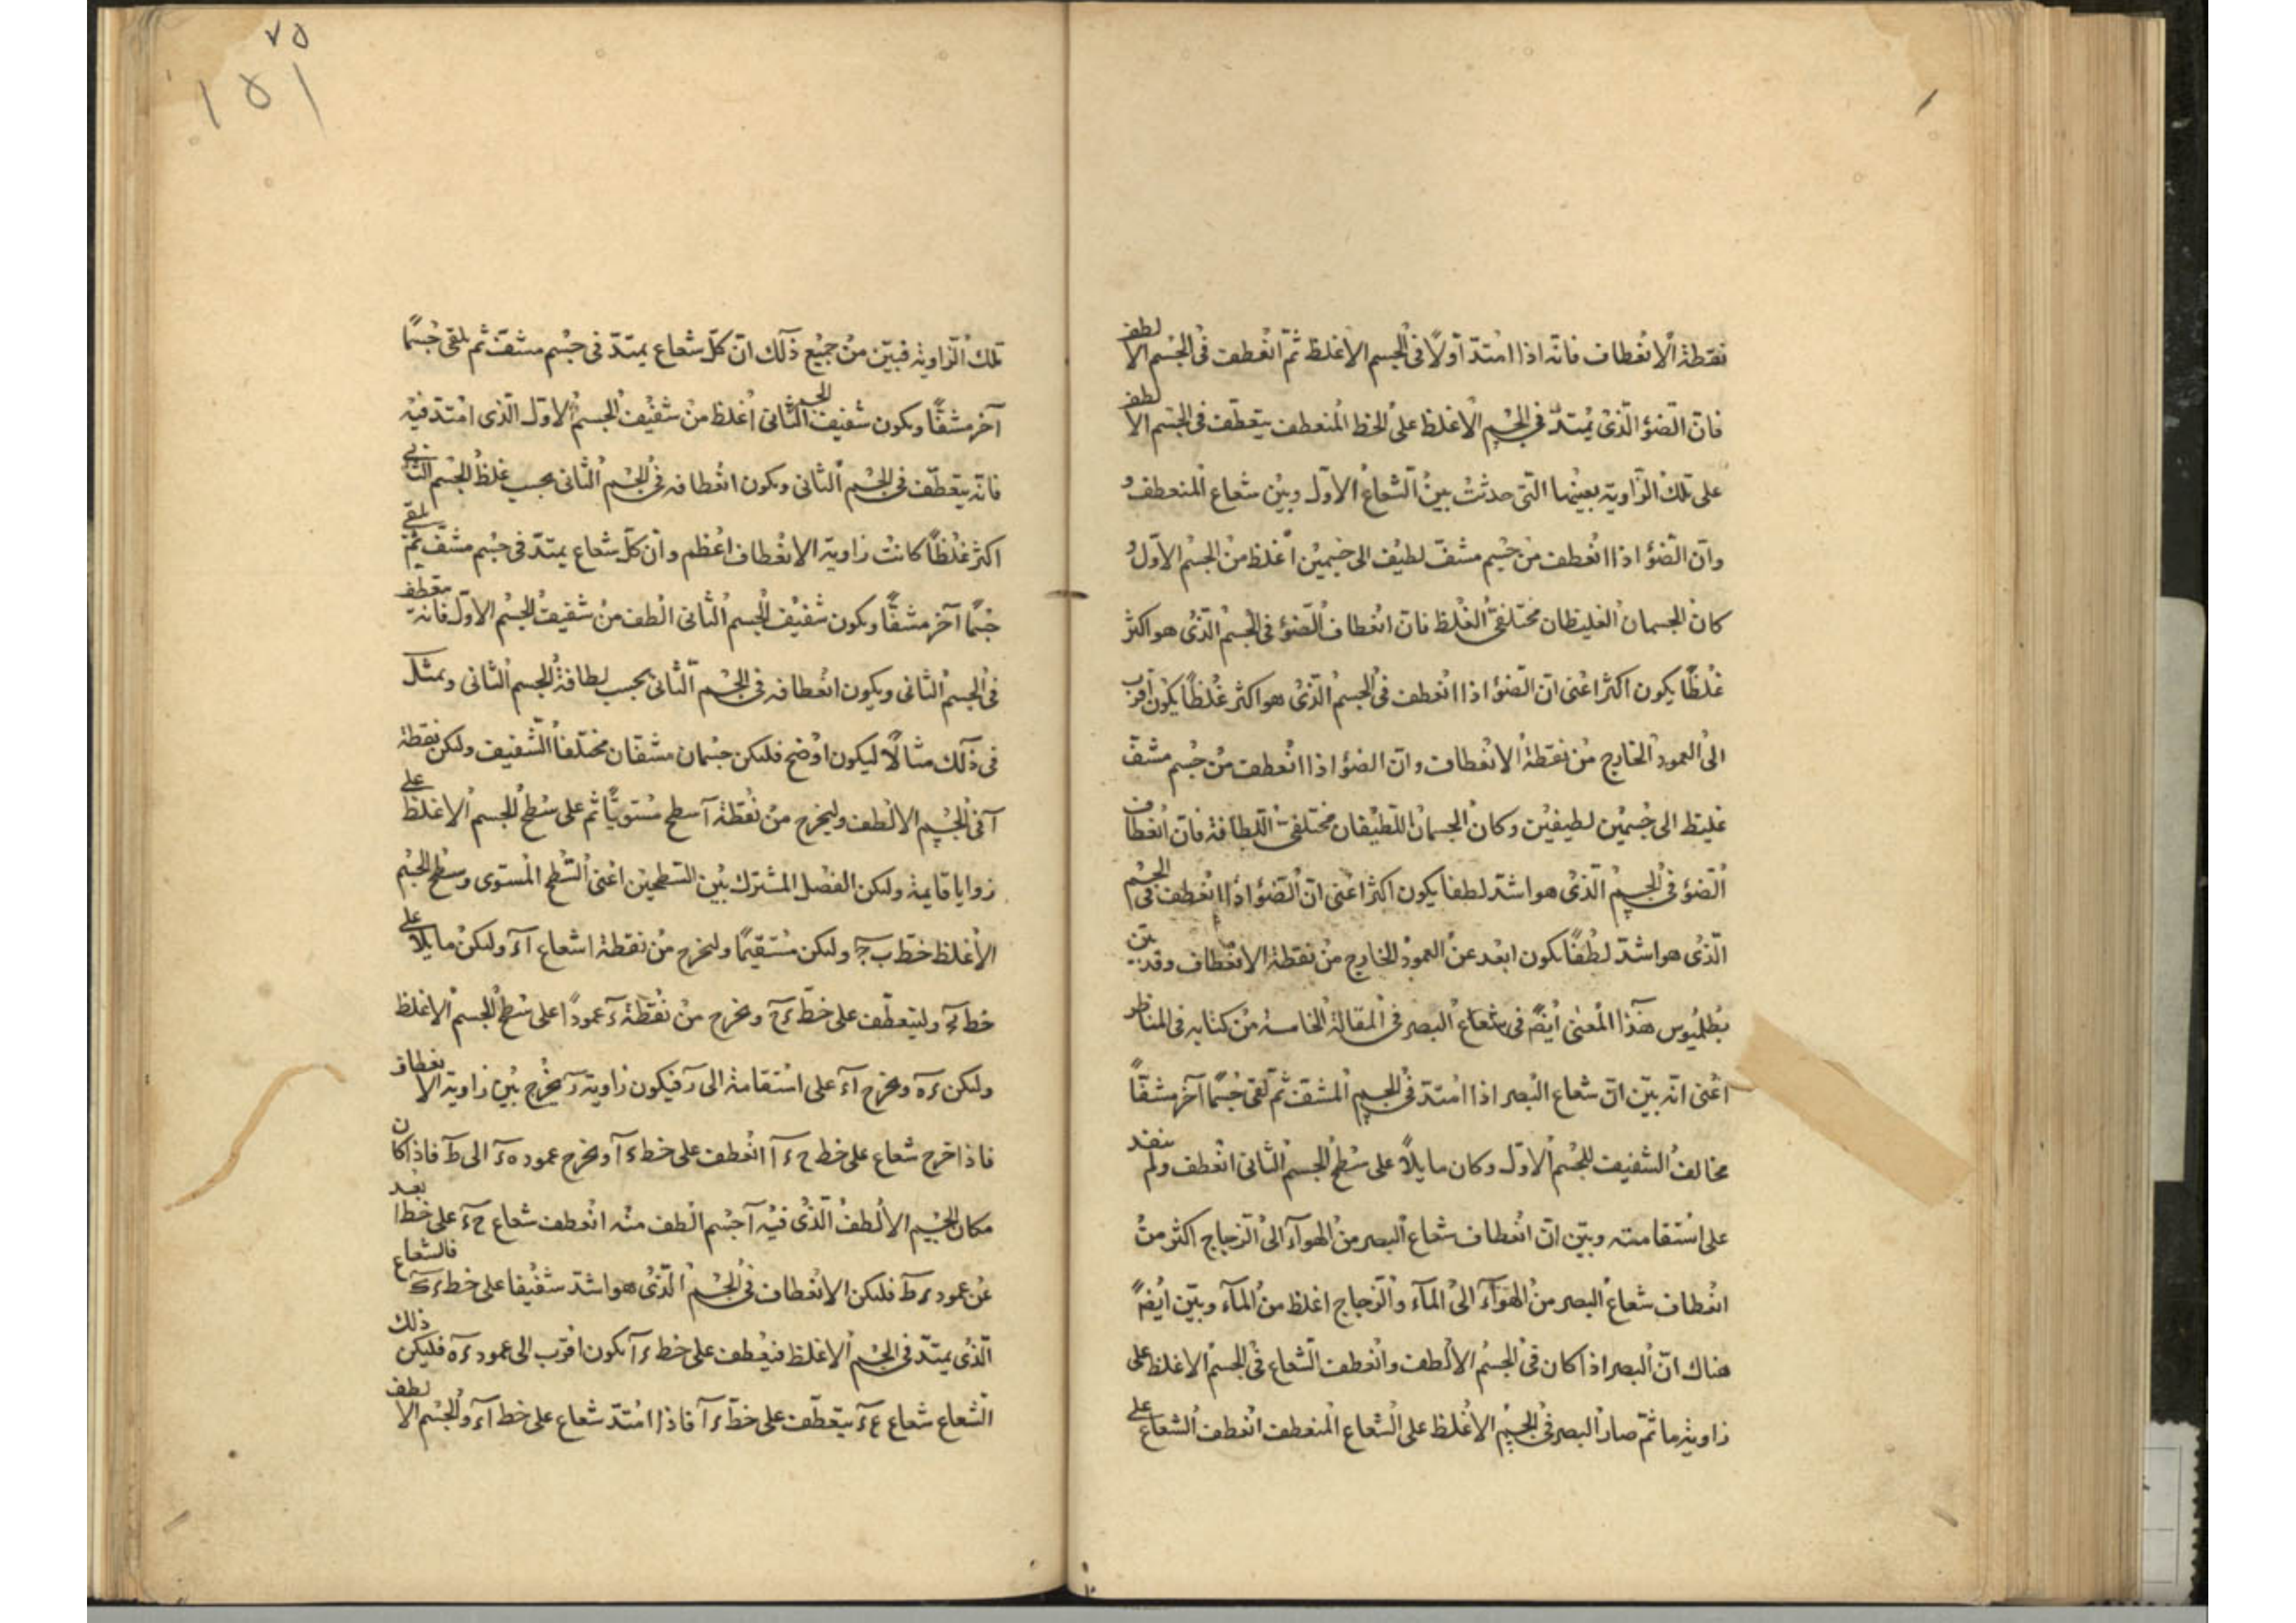 نقطة الانعطاف فانه اذا امتد أولاً في الجسم الاغلظ ثم انعطف في الجسم الالطف
فان الضوء الذي يمتد في الجسم الاغلظ على الخط المنعطف يتعطف في الجسم الالطف
على تلك الزاوية بعينها التي حدثت بين الشعاع الاول وبين شعاع المنعطف و
وان الضوء اذا انعطف من جسم مشف لطيف الى جسمين أغلظ من الجسم الاول و
كان الجسمان الغليظان مختلفي الغلظ فان انعطاف الضوء في الجسم الذي هو اكثر
غلظاً يكون اكثر اعني ان الضوء اذا انعطف في الجسم الذي هو اكثر غلظاً يكون أقرب
الى العمود الخارج من نقطة الانعطاف وان الضوء اذا انعطف من جسم مشف
غليظ الى جسمين لطيفين وكان الجسمان اللطيفان مختلفي اللطافة فان انعطاف
الضوء في الجسم الذي هو اشد لطفا يكون اكثر اعني ان الضوء اذا انعطف في الجسم
الذي هو اشد لطفاً يكون ابعد عن العمود الخارج من نقطة الانعطاف وقد بين
بطلميوس هذا المعنى أيضً في شعاع البصر في المقالة الخامسة من كتابه في المناظر
اعني انه بين ان شعاع البصر اذا امتد في الجسم المشف ثم لقي جسماً آخر مشفاً
مخالف الشفيف للجسم الاول وكان مايلاً على سطح الجسم الثاني انعطف ولم ينفد
على استقامته وبين ان انعطاف شعاع البصر من الهوآء الى الزجاج اكثر من
انعطاف شعاع البصر من الهوآء الى المآء والزجاج اغلظ من المآء وبين أيضً
هناك ان البصر اذا كان في الجسم الالطف وانعطف الشعاع في الجسم الاغلظ على
زاوية ما ثم صار البصر في الجسم الاغلظ على الشعاع المنعطف انعطف الشعاع على
٧٥
١٥١
تلك الزاوية فبين من جميع ذلك ان كل شعاع يمتد في جسم مشف ثم يلقى جسماً
آخر مشفاً ويكون شفيف الجسم الثاني أغلظ من شفيف الجسم الاول الذي امتد فيه
فانه يتعطف في الجسم الثاني ويكون انعطافه في الجسم الثاني بحسب غلظ الجسم الثاني
اكثر غلظاً كانت زاوية الانعطاف اعظم وان كل شعاع يمتد في جسم مشف ثم يلقى
جسماً آخر مشفاً ويكون شفيف الجسم الثاني الطف من شفيف الجسم الاول فانه يتعطف
في الجسم الثاني ويكون انعطافه في الجسم الثاني بحسب لطافة الجسم الثاني ونمثل
في ذلك مثالاً ليكون اوضح فليكن جسمان مشفان مختلفا الشفيف وليكن نقطة
آ في الجسم الالطف وليخرج من نقطة آ سطح مستوياً ثم على سطح الجسم الاغلظ على
زوايا قايمة وليكن الفصل المشترك بين السطحين اعني السطح المستوى وسطح الجسم
الاغلظ خط ب ج وليكن مستقيماً وليخرج من نقطة ا شعاع آء وليكن مايلاً على
خط وليتعطف على خط ويخرج من نقطة ء عموداً على سطح الجسم الاغلظ
وليكن ءه ويخرج آء على استقامة الى ر فيكون زاوية بين زاوية الانعطاف
فاذا خرج شعاع على خط ح ء آ انعطف على خط ءآ ويخرج عمود ه ء الى ط فاذا كان
مكان الجسم الالطف الذي فيه آ جسم الطف منه انعطف شعاع ح ء على خط ابعد
عن عمود ءط فليكن الانعطاف في الجسم الذي هو اشد شفيفا على خط ءك فالشعاع
الذي يمتد في الجسم الاغلظ فينعطف على خط ءآ يكون اقرب الى عمود ءه فليكن ذلك
الشعاع شعاع ع ء يتعطف على خط ءآ فاذا امتد شعاع على خط آء والجسم الالطف